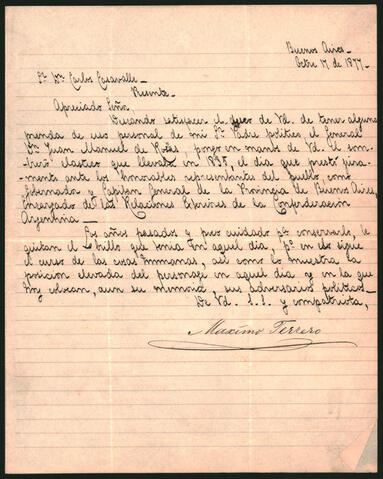 Buenos Aires
Octre 17 de 1877.
Sr. Dn. Carlos Casavalle
Presente
Apreciado Señor
Deseando satisfacer el deseo de Vd. de tener alguna
prenda de uso personal de mi Sr. Padre político el General
Dn. Juan Manuel de Rosas, pongo en manos de Vd. el som-
brero elastico que llevaba en 1835, el dia que prestó jura-
mento ante los Honorables representantes del pueblo, como
Gobernador y Capitan General de la Provincia de Buenos Aires,
Encargado de las Relaciones Exteriores de la Confederacion
Argentina.
Los años pasados y poco cuidado en conservarlo, le
quitan el brillo que tenia en aquel dia, pº en eso sigue
el curso de las cosas humanas, asi como lo muestra la
posicion elevada del personage en aquel dia y en la que
hoy colocan, aun su memoria, sus adversarios politicos.
De Vd. S.S. y compatriota,
Maximo Terrero